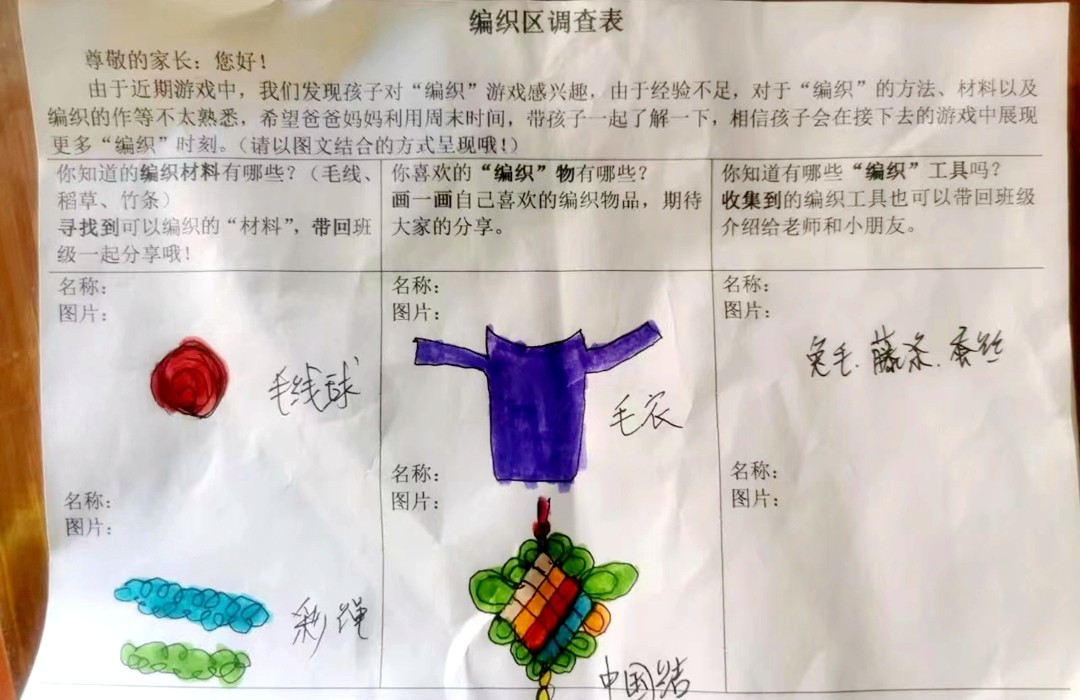 编织区调查表
尊敬的家长：您好！
由于近期游戏中，我们发现孩子对“编织”游戏感兴趣，由于经验不足，对于“编织”的方法、材料以及
编织的作等不太熟悉，希望爸爸妈妈利用周末时间，带孩子一起了解一下，相信孩子会在接下去的游戏中展现
更多“编织”时刻。（请以图文结合的方式呈现哦！）
你知道的编织材料有哪些？（毛线、
稻草、竹条）
寻找到可以编织的“材料”，带回班
级一起分享哦！
你喜欢的“编织”物有哪些？
画一画自己喜欢的编织物品，期待
大家的分享。
你知道有哪些“编织”工具吗？
收集到的编织工具也可以带回班级
介绍给老师和小朋友。
名称：
图片：
毛线球
名称：
图片：
彩绳
名称：
图片：
毛衣
名称：
图片：
中国结
名称：
图片：
兔毛.藤条.蚕丝
名称：
图片：